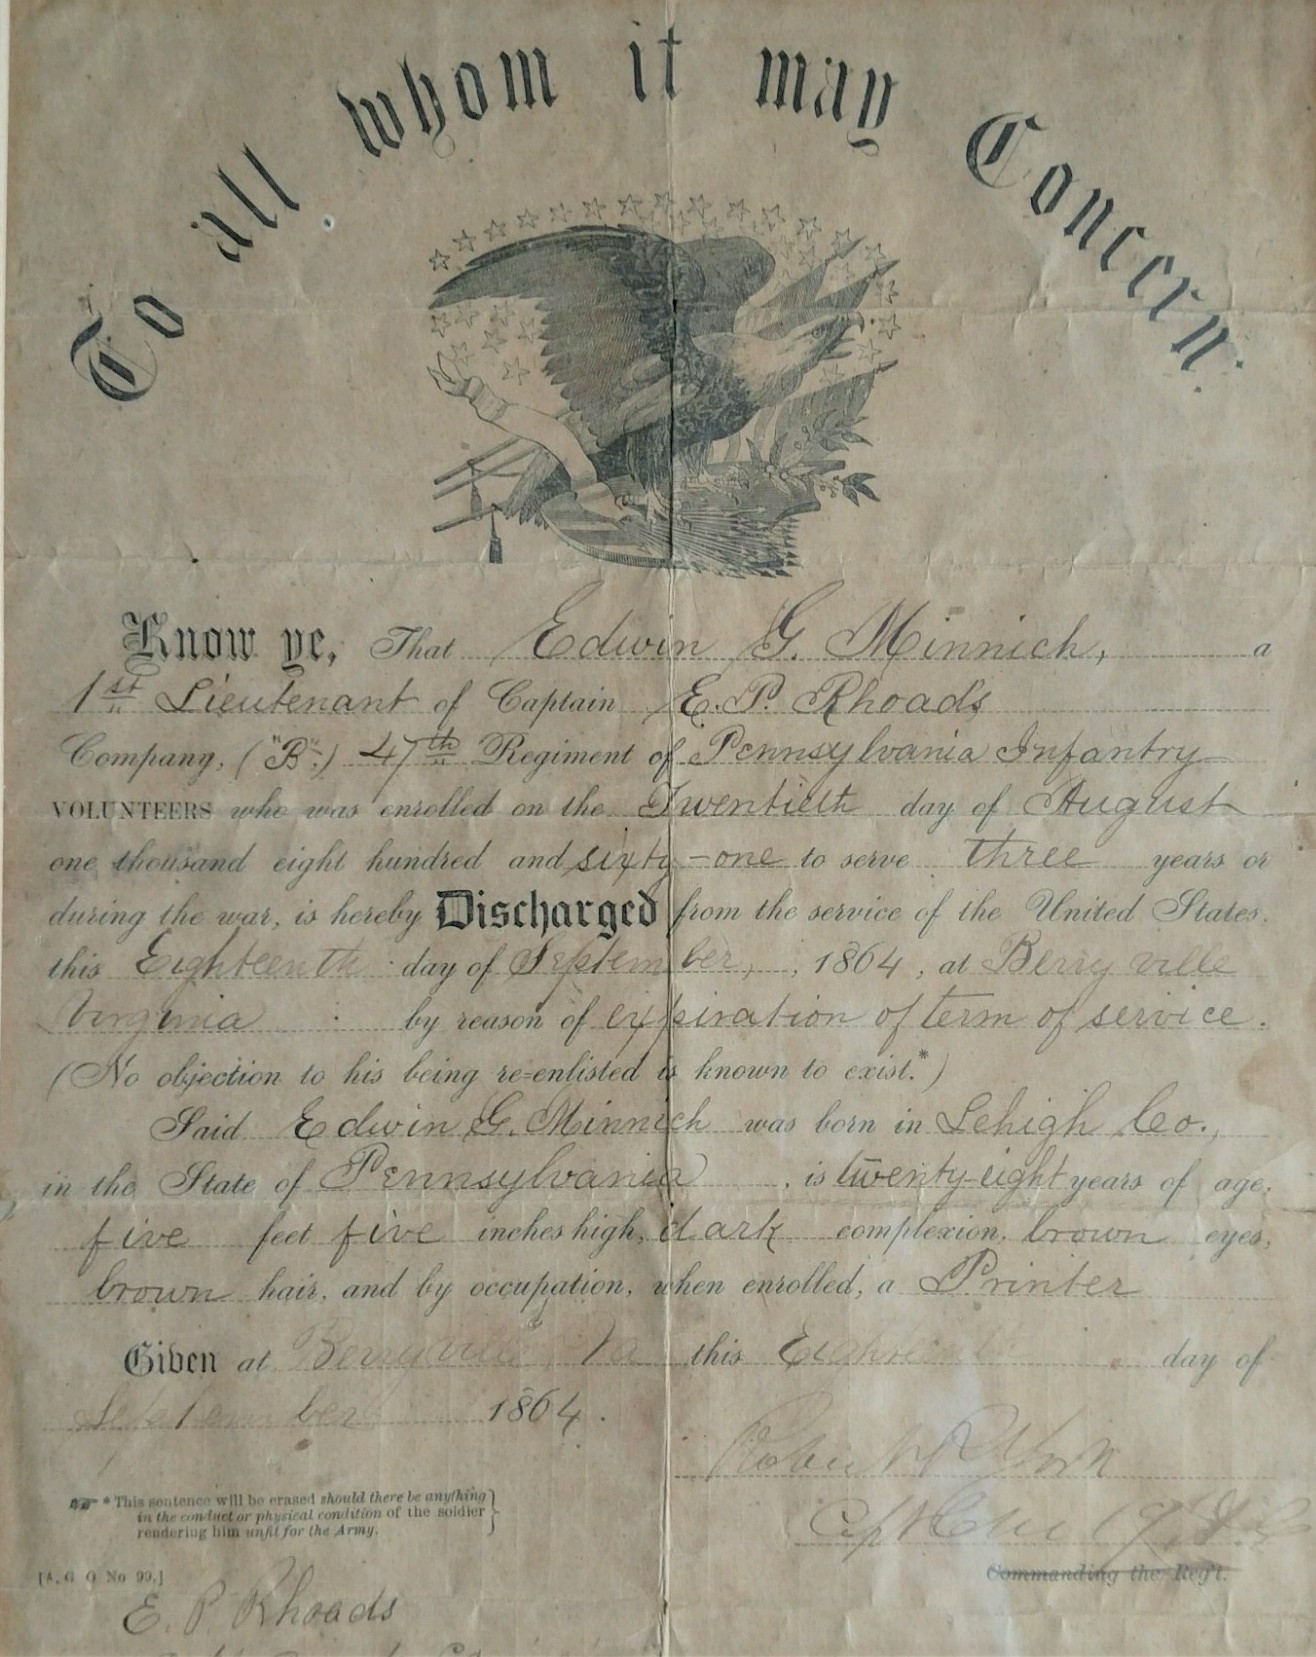 To all whom it may Concern.
Know ye, That Edwin G. Minnich, a
1st Lieutenant of Captain E. P. Rhoads
Company, ("B".) 47th Regiment of Pennsylvania Infantry
VOLUNTEERS who was enrolled on the Twentieth day of August
one thousand eight hundred and sixty-one to serve three years or
during the war, is hereby Discharged from the service of the United States,
this Eighteenth day of September, 1864, at Berryville
Virginia by reason of expiration of term of service.
(No objection to his being re-enlisted is known to exist.*)
Said Edwin G. Minnich was born in Lehigh Co.,
in the State of Pennsylvania, is twenty-eight years of age,
five feet five inches high, dark complexion, brown eyes,
brown hair, and by occupation, when enrolled, a Printer
Given at Berryville Va this Eighteenth day of
September 1864.
Robert P. York
* This sentence will be erased should there be anything
in the conduct or physical condition of the soldier
rendering him unfit for the Army.
Capt 19
[A. G. O. No 99.]
Commanding the Reg't.
E. P. Rhoads